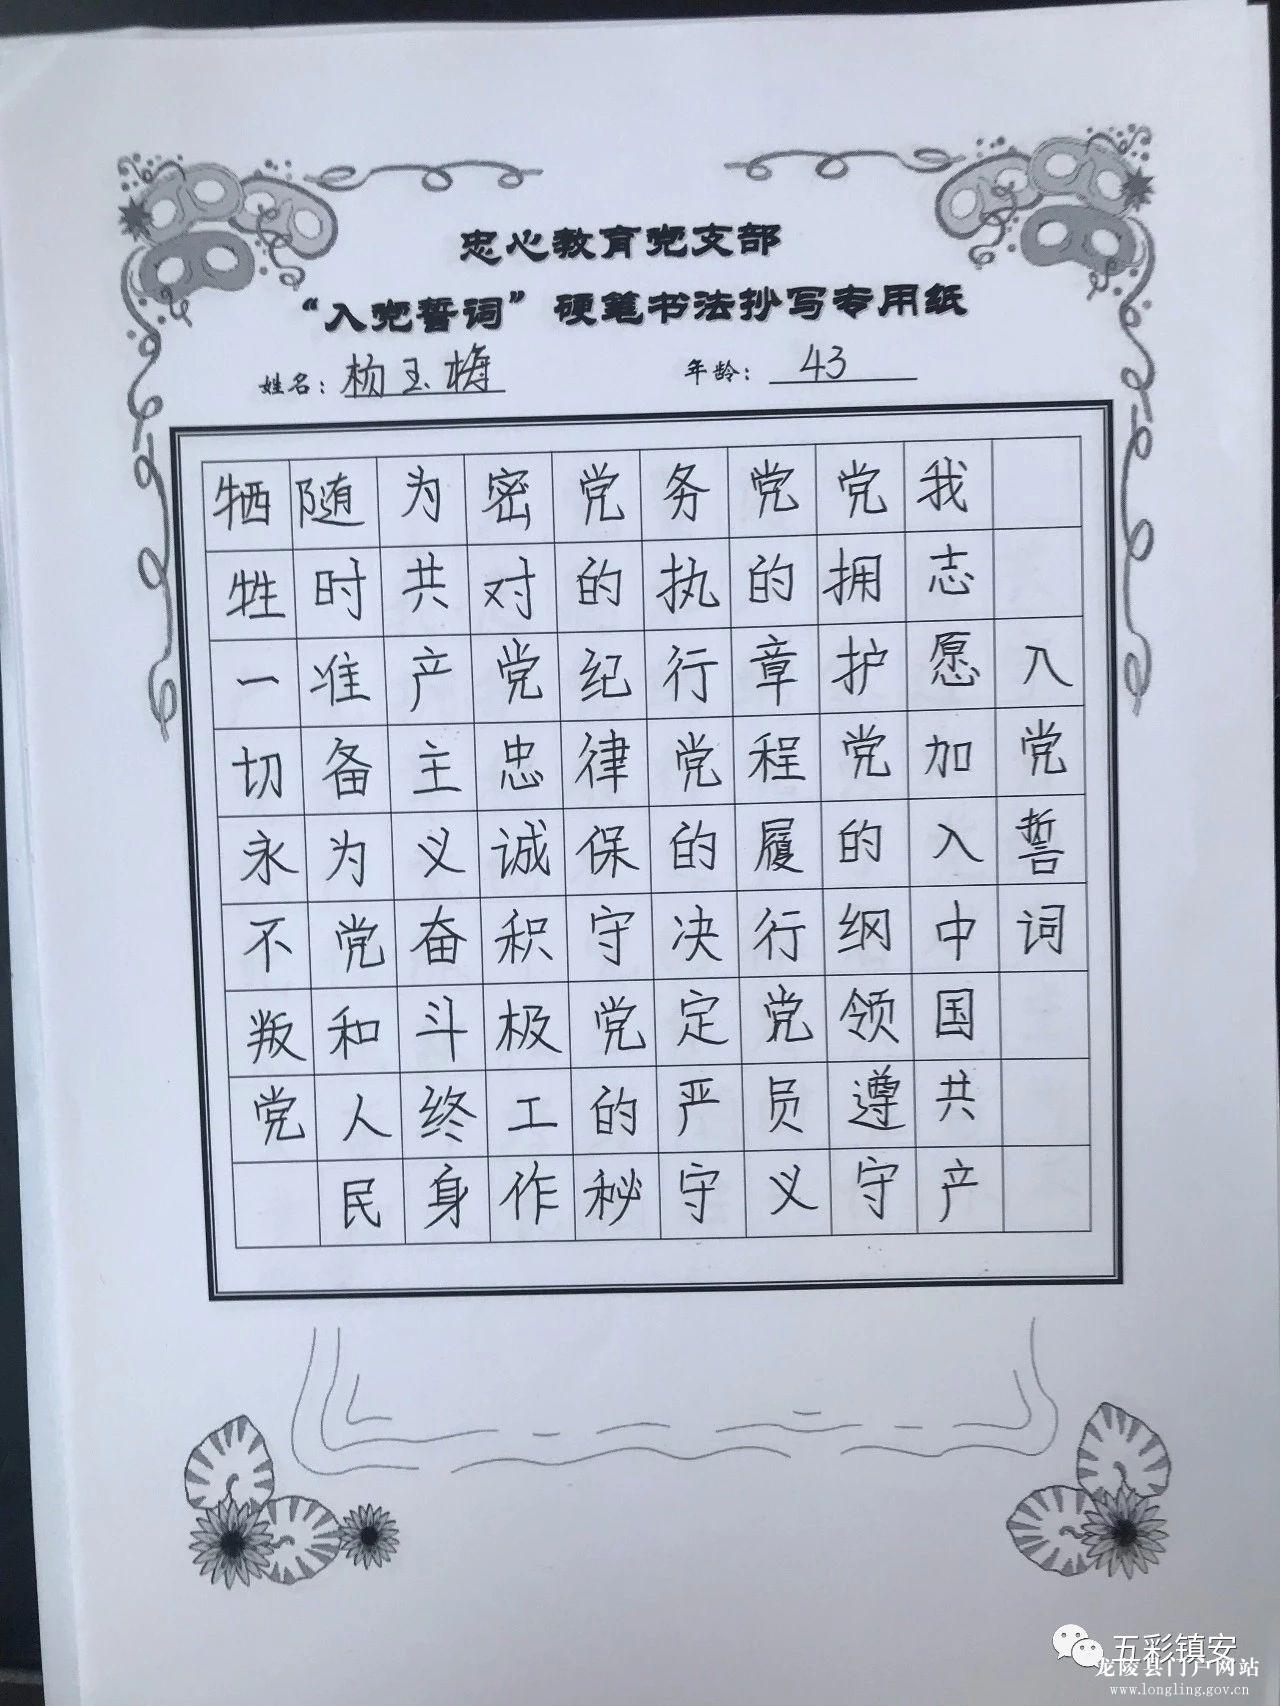 忠心教育党支部
“入党誓词”硬笔书法抄写专用纸
姓名：杨玉梅 年龄：43
入党誓词
我志愿加入中国共产
党拥护党的纲领遵守
党的章程履行党员义
务执行党的决定严守
党的纪律保守党的秘
密对党忠诚积极工作
为共产主义奋斗终身
随时准备为党和人民
牺牲一切永不叛党
五彩镇安
龙陵县门户网站
www.longling.gov.cn